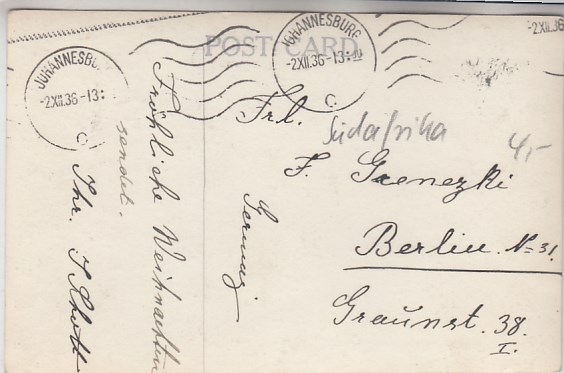 POST CARD
JOHANNESBURG
-2XII.36-13:
C
JOHANNESBURG
-2XII.36-13:
C
-2XII.36
Fröhliche Weihnachten
sendet.
Ihr.
Frl.
Südafrika
4,-
F.
Berlin. N=31.
Graŭnst. 38.
I.